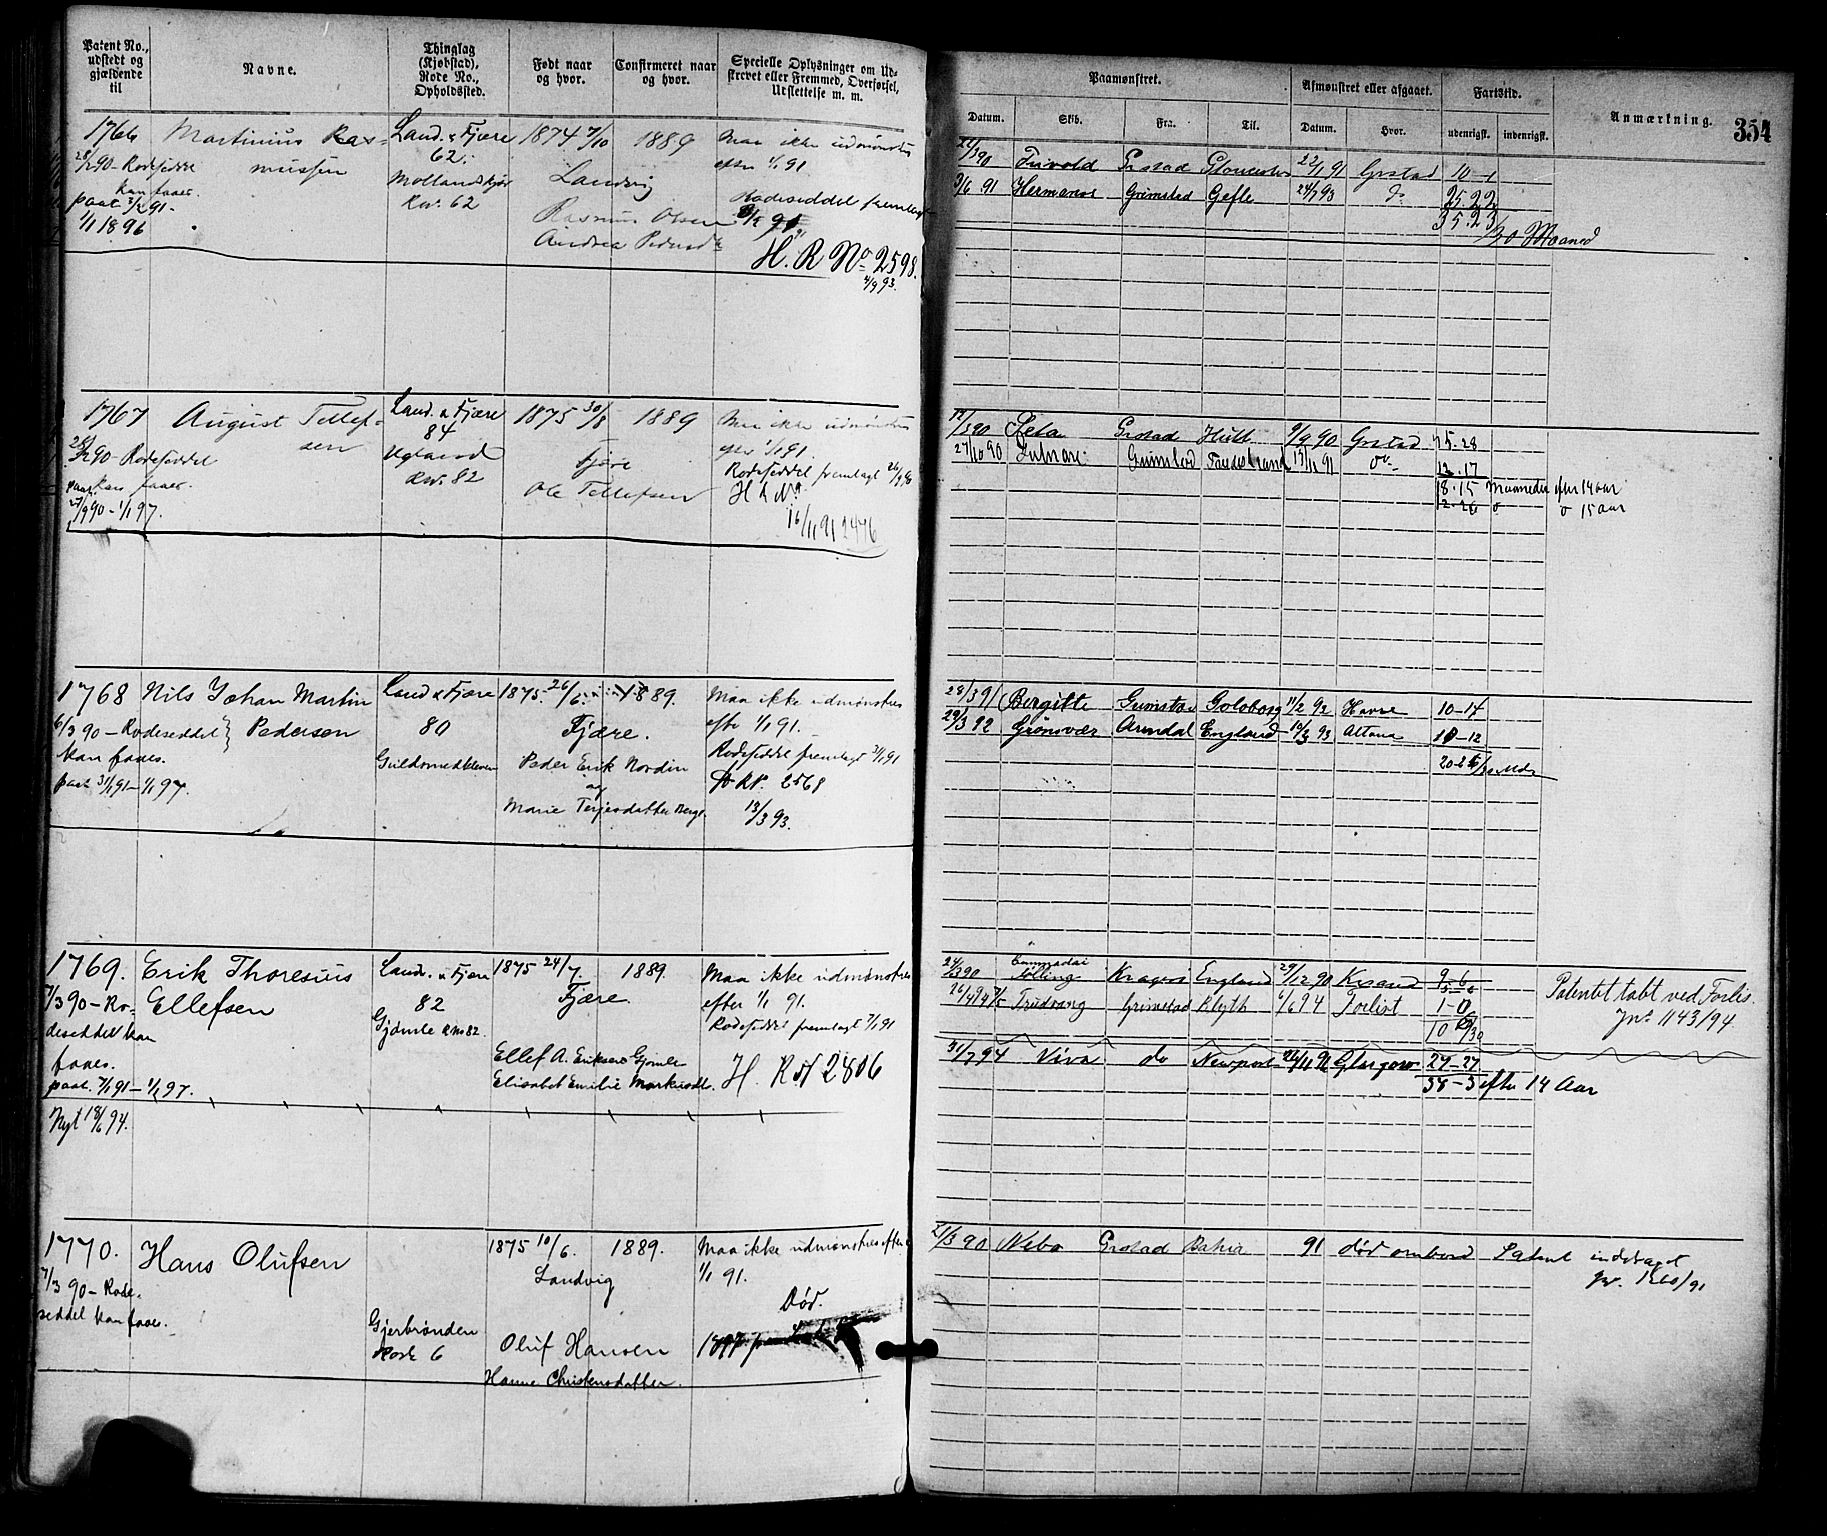 Patent No., udstedt og gjældende til
Navne.
Thinglag (Kjøbstad), Rode No., Opholdssted.
Født naar og hvor.
Confirmeret naar og hvor.
Specielle Oplysninger om Udskrevet eller Fremmed, Overførsel, Udslettelse m. m.
Paamønstret.
Afmønstret eller afgaaet.
Fartstid.
Anmærkning.
354
Datum.
Skib.
Fra.
Til.
Datum.
Hvor.
udenrigst.
indenrigst.
1766
28/2 90 - Rodeseddel
kan faaes.
paat. 3/2 91 -
1/1 1896
Martinius Ras-
mussen
Land. & Fjære
62.
Rno. 62
1874 7/10
1889
Landvig
Rasmus Olsen
Andrea
Maa ikke udmønstres
efter 1/1 91
Rodeseddel fremlagt
H. R No 2598.
4/9 93.
Grstad
22/1 91
Grstad
10-1
3/6 91
Grimstad
Gefle
24/7 93
do
25.22
35.23/30 Maaned
1767
28/2 90 - Rodeseddel
kan faaes.
27/9 90 - 1/1 97.
August Tellef-
sen
Land. & Fjære
84
Rno. 82
1875 30/8
1889
Fjære
Ole Tellefsen
Maa ikke udmønstres
1/1 91.
Rodeseddel fremlagt
16/11 91 2476
12/3 90
Grstad
9/9 90
Grstad
27/10 90
Grimstad
Tvedestrand
12.17
18.15 Maaneder efter 14 aar
12.26 o o 15 aar
1768
6/3 90 - Rodeseddel
kan faaes.
paat 3/1 91 - 1/1 97.
Nils Johan Martin
Pedersen
Land & Fjære
80
1875 26/6
1889.
Fjære.
Peder Erik Nordin
og
Marie Terjesdatter Berge.
Maa ikke udmønstres
efter 1/1 91.
Rodeseddel fremlagt 3/1 91
2568
13/3 93.
28/3 91
Bergitte
Grimstad
Goloborg
11/2 92
Havre
10-14
29/3 92
Grønsvær
Arendal
England
Altona
10-12
1769.
7/3 90 - Ro-
deseddel kan
faaes.
paat. 7/1 91 - 1/1 97.
Nyt 18/6 94.
Erik Thoresius
Ellefsen
Land. & Fjære
82
Gjømle Rno 82.
1875 24/7.
1889.
Fjære.
Ellef A. Eriksen Gjømle
Elisabet Emilie Markusdtr.
Maa ikke udmønstres
efter 1/1 91.
Rodeseddel fremlagt 7/1 91
H. R No 2806
24/3 90
Kragerø
England
29/12 90
Krsand
9-6
Trudvang
Grimstad
Blyth
6/6 94
Forlist
1-0
Patentet tabt ved Forlis.
Jno. 1143/94
31/7 94
Viva
do
Newport
Glasgow
27-27
38-3 efter 14 Aar
1770.
7/3 90 - Rode-
seddel kan faaes.
Hans Olufsen
Gjerbrønden
Rode 6
1875 10/6.
1889.
Landvig
Oluf Hansen
Hanne Christensdatter.
Maa ikke udmønstres efter
1/1 91.
Død.
21/3 90
Nebo
Grstad
Bahia
91
død ombord
Patent inddraget